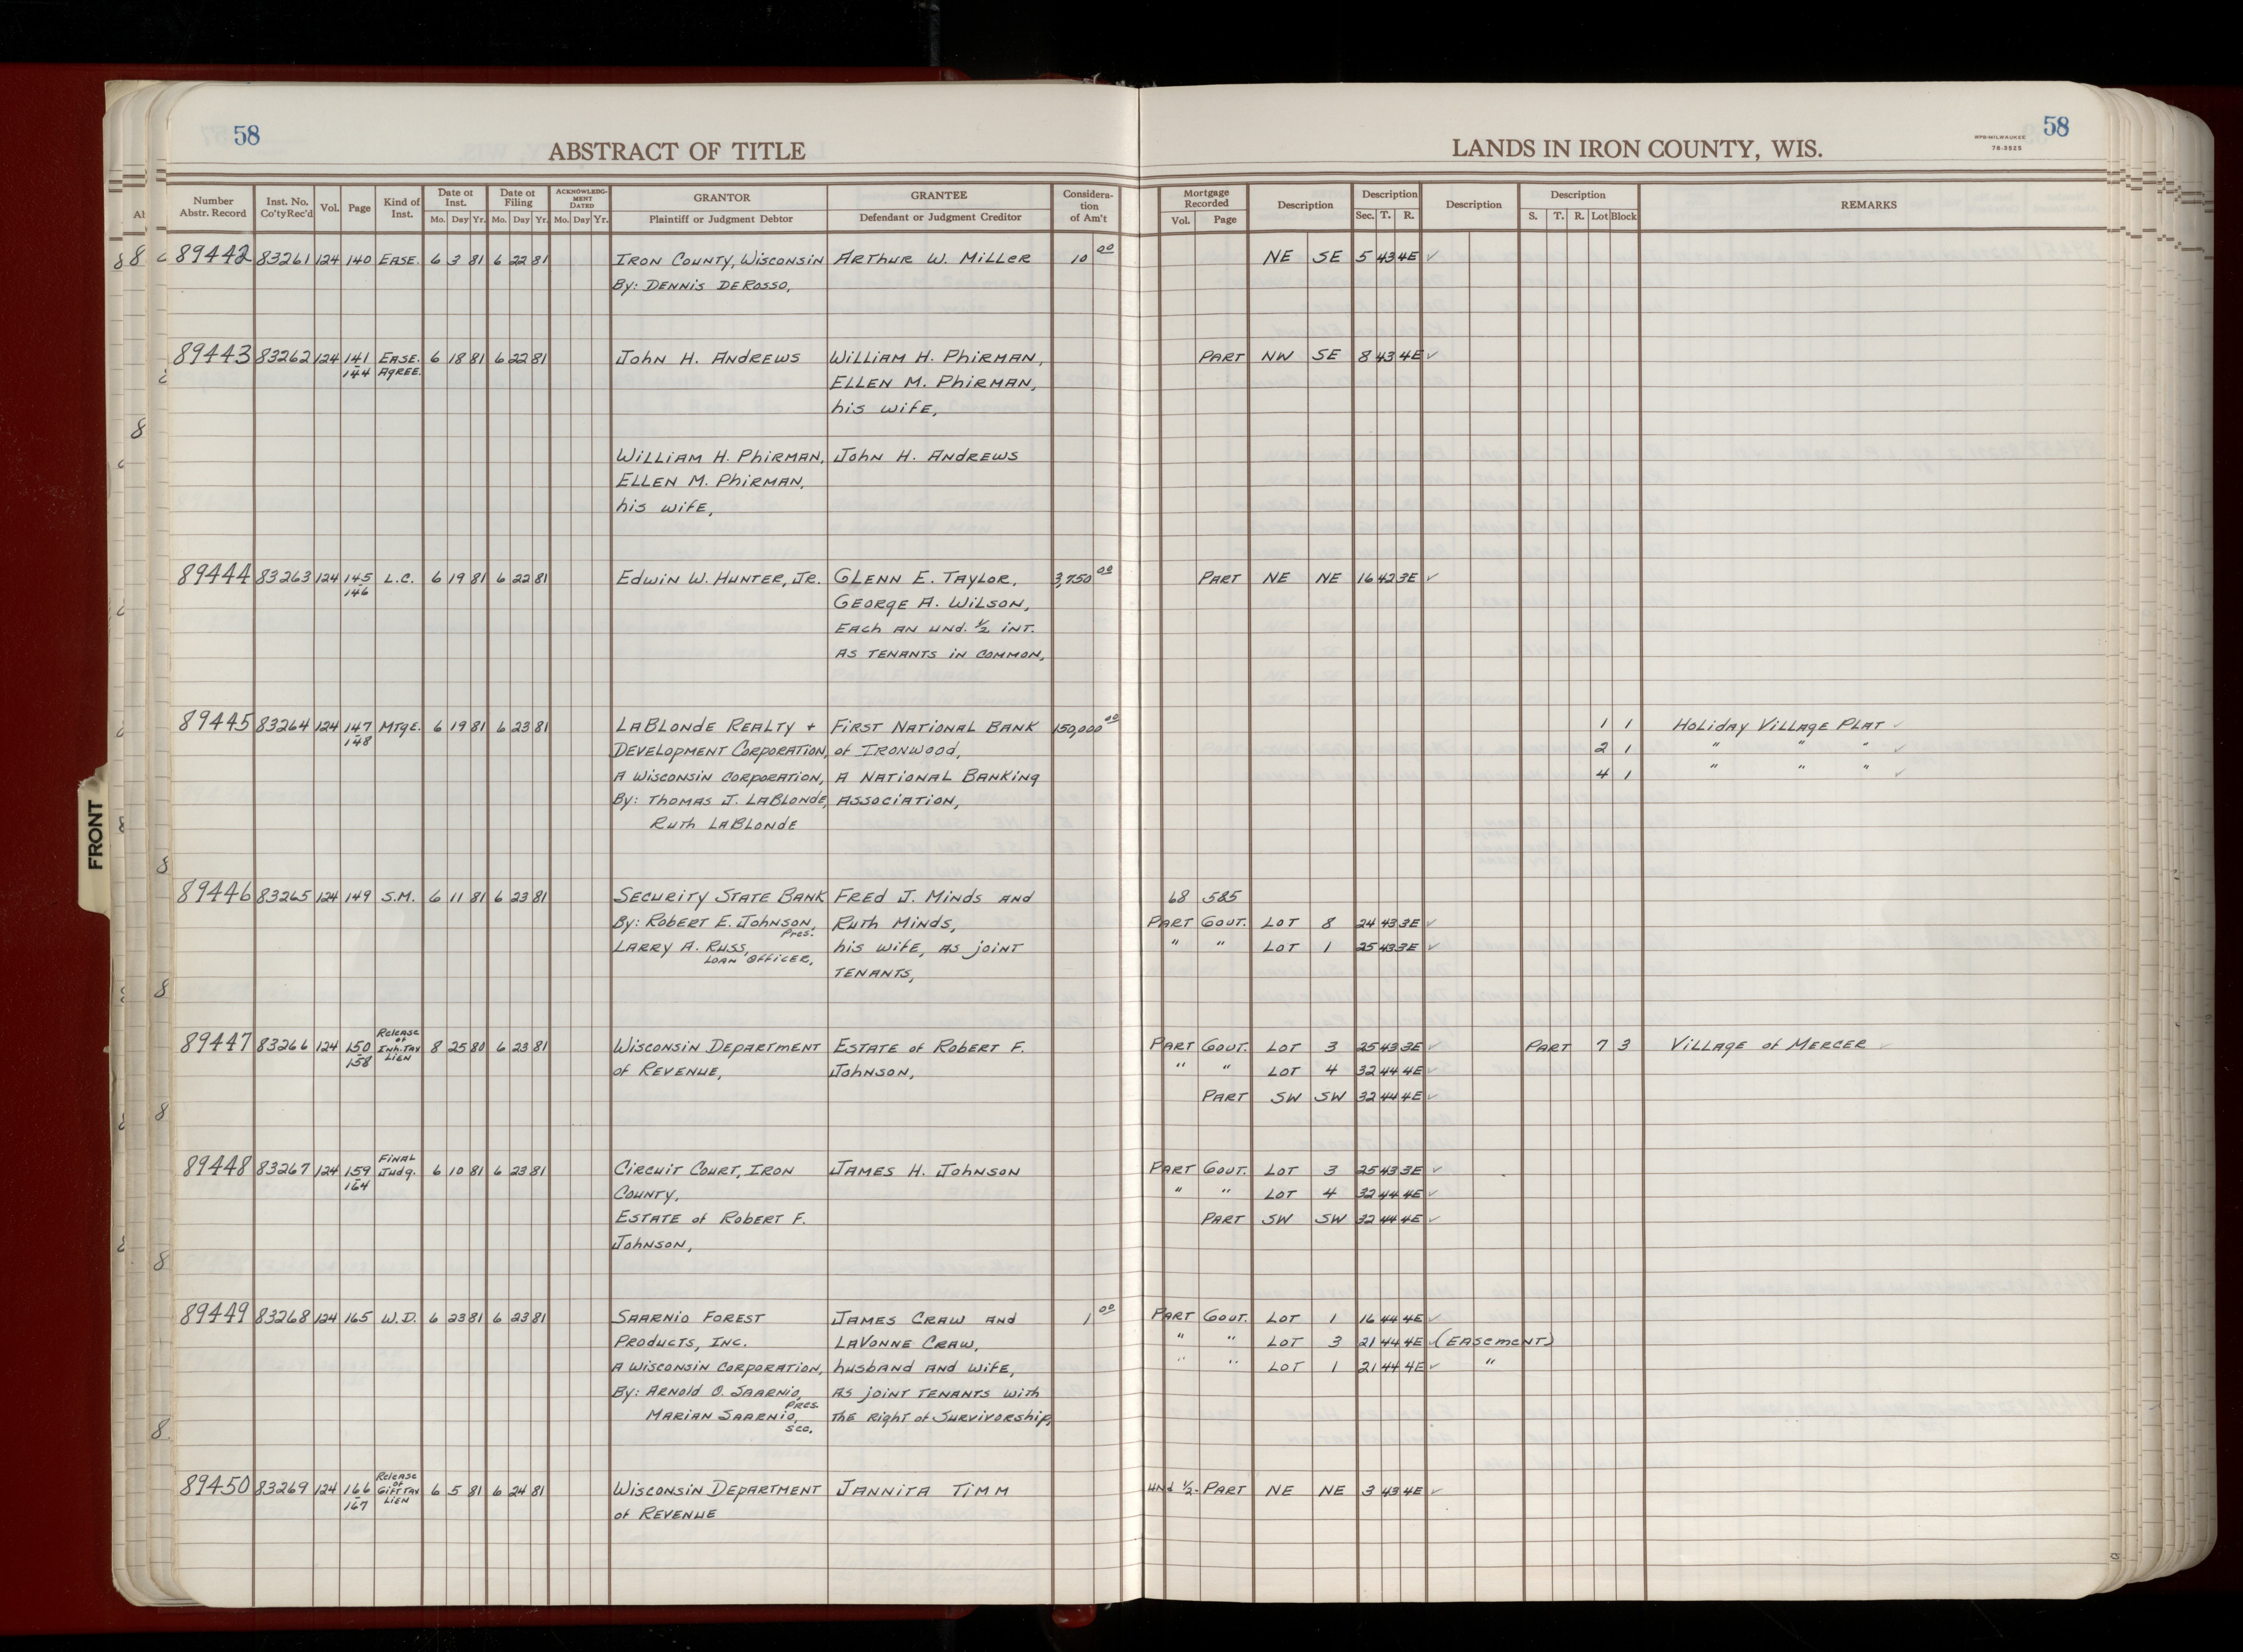 58
ABSTRACT OF TITLE
LANDS IN IRON COUNTY, WIS.
WPB-MILWAUKEE
78-3525
58
Number Abstr. Record Inst. No. Co'ty Rec'd Vol. Page Kind of Inst. Date of Inst. Mo. Day Yr. Date of Filing Mo. Day Yr. ACKNOWLEDGMENT DATED Mo. Day Yr. GRANTOR Plaintiff or Judgment Debtor GRANTEE Defendant or Judgment Creditor Consideration of Am't Mortgage Recorded Vol. Page Description Description Sec. T. R. Description Description S. T. R. Lot Block REMARKS
89442 83261 124 140 EASE. 6 3 81 6 22 81 IRON COUNTY, WISCONSIN ARTHUR W. MILLER 10 00 NE SE 5 43 4E ✓
By: DENNIS DEROSSO,
89443 83262 124 141 EASE. 6 18 81 6 22 81 JOHN H. ANDREWS WILLIAM H. PHIRMAN, PART NW SE 8 43 4E ✓
-144 AGREE. ELLEN M. PHIRMAN,
his wife,
WILLIAM H. PHIRMAN, JOHN H. ANDREWS
ELLEN M. PHIRMAN,
his wife,
89444 83263 124 145 L.C. 6 19 81 6 22 81 EDWIN W. HUNTER, JR. GLENN E. TAYLOR, 3,750 00 PART NE NE 16 42 3E ✓
-146 GEORGE A. WILSON,
EACH AN UND. 1/2 INT.
AS TENANTS IN COMMON,
89445 83264 124 147 MTGE. 6 19 81 6 23 81 LABLONDE REALTY + FIRST NATIONAL BANK 150,000 00 1 1 HOLIDAY VILLAGE PLAT ✓
-148 DEVELOPMENT CORPORATION, of IRONWOOD, 2 1 " " " ✓
A WISCONSIN CORPORATION, A NATIONAL BANKING 4 1 " " " ✓
By: THOMAS J. LABLONDE, ASSOCIATION,
RUTH LABLONDE
89446 83265 124 149 S.M. 6 11 81 6 23 81 SECURITY STATE BANK FRED J. MINDS AND 68 585
By: ROBERT E. JOHNSON, Pres. RUTH MINDS, PART GOVT. LOT 8 24 43 3E ✓
LARRY A. RUSS, LOAN OFFICER, his wife, AS JOINT " " LOT 1 25 43 3E ✓
TENANTS,
89447 83266 124 150 -158 Release of Inh. Tax LIEN 8 25 80 6 23 81 WISCONSIN DEPARTMENT ESTATE of ROBERT F. PART GOVT. LOT 3 25 43 3E ✓ PART 7 3 VILLAGE of MERCER ✓
of REVENUE, JOHNSON, " " LOT 4 32 44 4E ✓
PART SW SW 32 44 4E ✓
89448 83267 124 159 -164 FINAL Judg. 6 10 81 6 23 81 CIRCUIT COURT, IRON JAMES H. JOHNSON PART GOVT. LOT 3 25 43 3E ✓
COUNTY, " " LOT 4 32 44 4E ✓
ESTATE of ROBERT F. PART SW SW 32 44 4E ✓
JOHNSON,
89449 83268 124 165 W.D. 6 23 81 6 23 81 SAARNIO FOREST JAMES CRAW AND 1 00 PART GOVT. LOT 1 16 44 4E ✓
PRODUCTS, INC. LAVONNE CRAW, " " LOT 3 21 44 4E ✓ (EASEMENT)
A WISCONSIN CORPORATION, husband AND WIFE, " " LOT 1 21 44 4E ✓ "
By: ARNOLD O. SAARNIO, Pres. AS JOINT TENANTS with
MARIAN SAARNIO, Sec. THE RIGHT of SURVIVORSHIP,
89450 83269 124 166 -167 Release of Gift Tax LIEN 6 5 81 6 24 81 WISCONSIN DEPARTMENT JANNITA TIMM und 1/2- PART NE NE 3 43 4E ✓
of REVENUE
FRONT